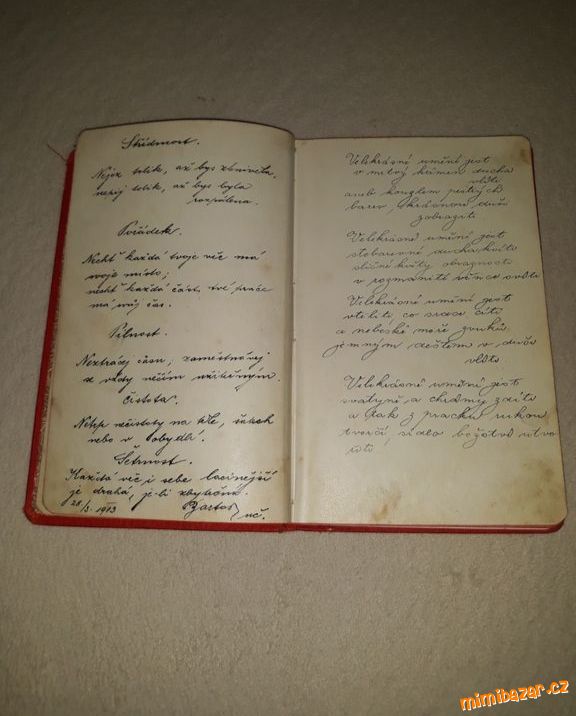 Střídmost.
Nejez tolik, až bys zlenivěla,
nepij tolik, až bys byla
rozpálena.
Pořádek.
Nechť každá tvoje věc má
svoje místo;
nechť každá část tvé práce
má svůj čas.
Pilnost.
Neztrácej času; zaměstnávej
se vždy něčím užitečným.
Čistota.
Netrp nečistoty na těle, šatech
nebo v obydlí.
Šetrnost.
Každá věc i sebe lacinější
je drahá, je-li zbytečna.
28/3. 1913 Bartoš
uč.
Velekrásné umění jest
v mrtvý kámen ducha
vlíti
aneb kouzlem pestrých
barev, chrámové
zobraziti
Velekrásné umění jest
stobarevné ducha kvítí
sličné květy obraznosti
v rozmanitý věnec svíti
Velekrásné umění jest
vtěliti, co srdce cítí
a nebeské moře zvuků
jemným deštěm v duši
vlíti.
Velekrásné umění jest
svatyně a chrámy
a tak z prachu rukou
tvorčí, sídlo božstvu